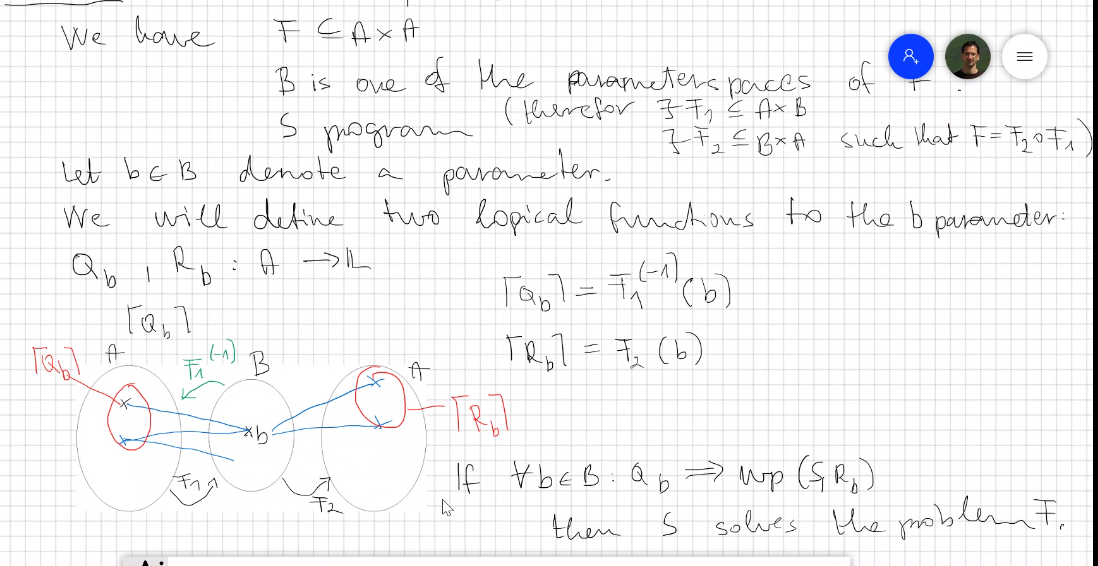 We have F ⊆ A × A
B is one of the parameterspaces of F.
(therefor ∃ F₁ ⊆ A×B
S program
∃ F₂ ⊆ B×A such that F = F₂ o F₁)
Let b ∈ B denote a parameter.
We will define two logical functions to the b parameter:
Q_b , R_b : A → 𝕃
⌈Q_b⌉ = F₁^(-1) (b)
⌈R_b⌉ = F₂ (b)
⌈Q_b⌉
⌈Q_b⌉ A F₁^(-1) B A
b
⌈R_b⌉
F₁ F₂
If ∀b∈B : Q_b ⇒ wp (S, R_b)
then S solves the problem F.